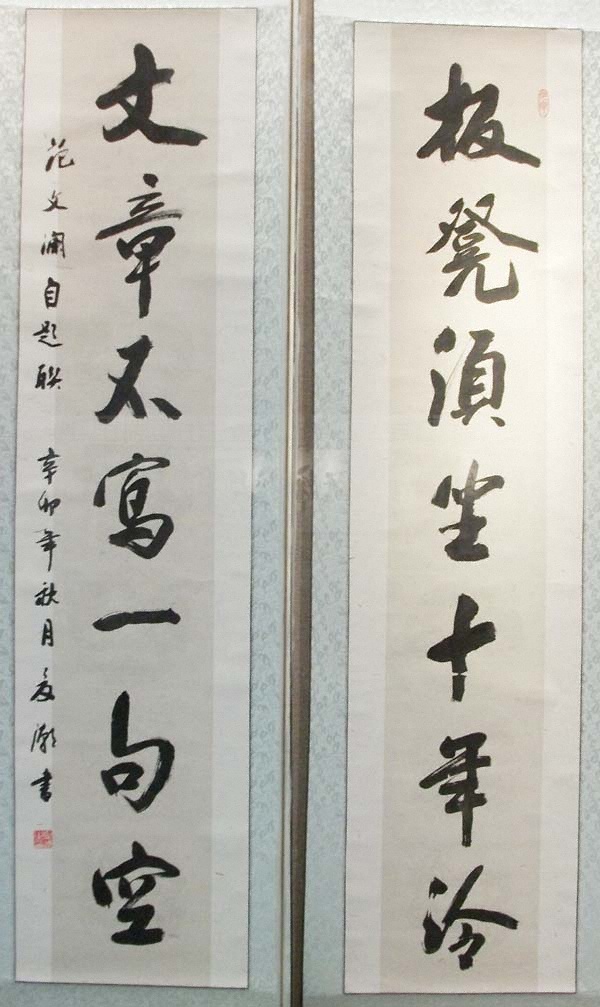 板凳須坐十年冷
文章不寫一句空
范文瀾自題聯 辛卯年秋月 書